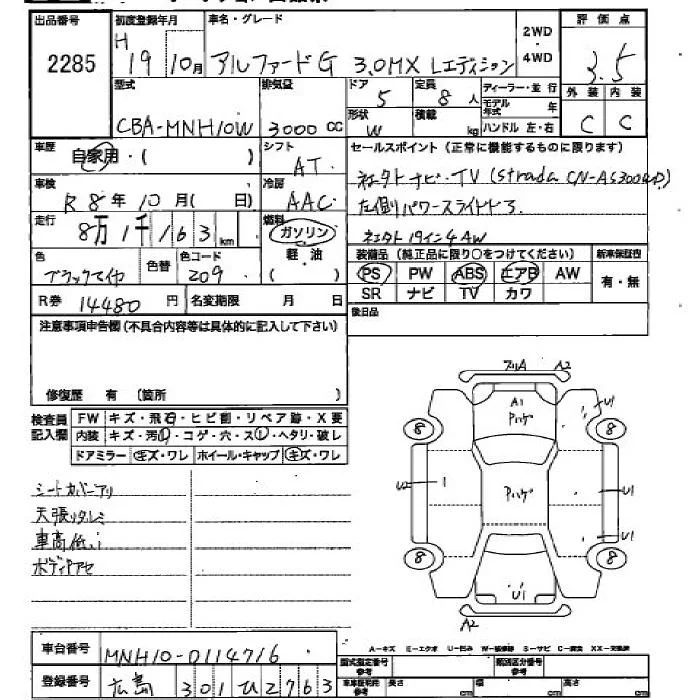 出品番号
2285
初度登録年月
H 19年10月
車名・グレード
アルファードG 3.0MX Lエディション
2WD・4WD
評価点
3.5
外装 内装
C C
型式
CBA-MNH10W
排気量
3000 CC
ドア 5
定員 8人
形状 W
積載 kg
ディーラー・並行
モデル年式 年
ハンドル 左・右
車歴
自家用・( )
シフト
AT
セールスポイント(正常に機能するものに限ります)
社外ナビ・TV (strada CN-AS300WD)
左側パワースライドドア
社外19インチAW
車検
R8年10月( 日)
冷房
AAC
走行
8万1千163km
燃料
ガソリン
軽・油
( )
色
ブラックマイカ
色替
色コード
209
装備品(純正品に限り○をつけてください)
新車保証書
PS PW ABS エアB AW
SR ナビ TV カワ
有・無
R券 14480円
名変期限 月 日
後日品
注意事項申告欄(不具合内容等は具体的に記入して下さい)
修復歴 有 (箇所 )
検査員記入欄
FW キズ・飛石・ヒビ割・リペア跡・X要
内装 キズ・汚れ・コゲ・穴・スレ・ヘタリ・破レ
ドアミラー キズ・ワレ ホイール・キャップ キズ・ワレ
シートカバーアリ
天張りタルミ
車高低い
ボディ色アセ
A2
A1
Pハゲ
U1
8 8
U2 1
Pハゲ
U1
U1
8 8
U1
A2
車台番号
MNH10-0114716
登録番号
広島 301 ひ2763
A-キズ E-エクボ U-凹み W-補修跡 S-サビ C-腐食 XX-交換済
型式指定番号 参考
類別区分番号 参考
車体寸用参考
長さ cm 幅 cm 高さ cm